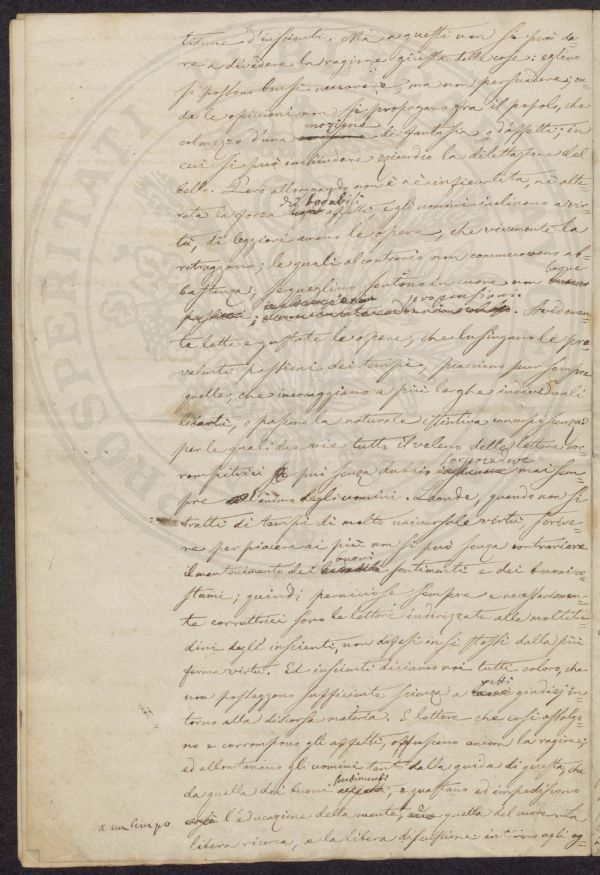 titune d'inscienti. Ma a questi non si può da=
re a divedere la ragione giusta delle cose: eglino
si possono bensì muovere, ma non persuadere; on=
de le opinioni non si propagano fra il popolo, che
col mezzo d'una mozione di fantasia o d'affetti; in
cui si può inchiudere eziandio la dilettazione del
bello. Però allorquando non è nè infievolita, nè alte=
rata la forza dei lodabili affetti, e gli uomini inclinano a vir=
tù, di leggieri amano le opere, che vivamente la
ritraggono; le quali al contrario non commuovono ab=
bastanza, se queglino sentono in cuore non laeque
propensioni. Avidamen=
te lette e gustate le opere, che lusingano le pre=
valenti passioni dei tempi, piacciono pur sempre
quelle, che incoraggiano a più larghe individuali
libertà, o pascono la naturale istintiva concupiscenza;
per le quali due vie tutto il veleno delle lettere cor=
rompitrici può senza dubbio mai sem=
pre l'animo degli uomini. Laonde, quando non si
tratti di tempi di molto universale virtù, scrive=
re per piacere ai più non si può senza contrariare
il mantenimento dei buoni sentimenti e dei buoni co=
stumi; quindi perniciose sempre e necessariamen=
te corruttrici sono le lettere indirizzate alle moltitu=
dini degl'inscienti, non difesi in se stessi dalla più
ferma virtù. Ed inscienti diciamo noi tutti coloro, che
non posseggono sufficiente scienza a retti giudizj in=
torno alla discorsa materia. E lettere che così assalgo=
no e corrompono gli affetti, offuscano ancora la ragione;
ed allontanano gli uomini tanto dalla guida di questa, che
da quella dei buoni sentimenti, e guastano ed impediscono
a un tempo l'educazione della mente, e quella del cuore. La
libera ricerca, e la libera discussione intorno agli og=